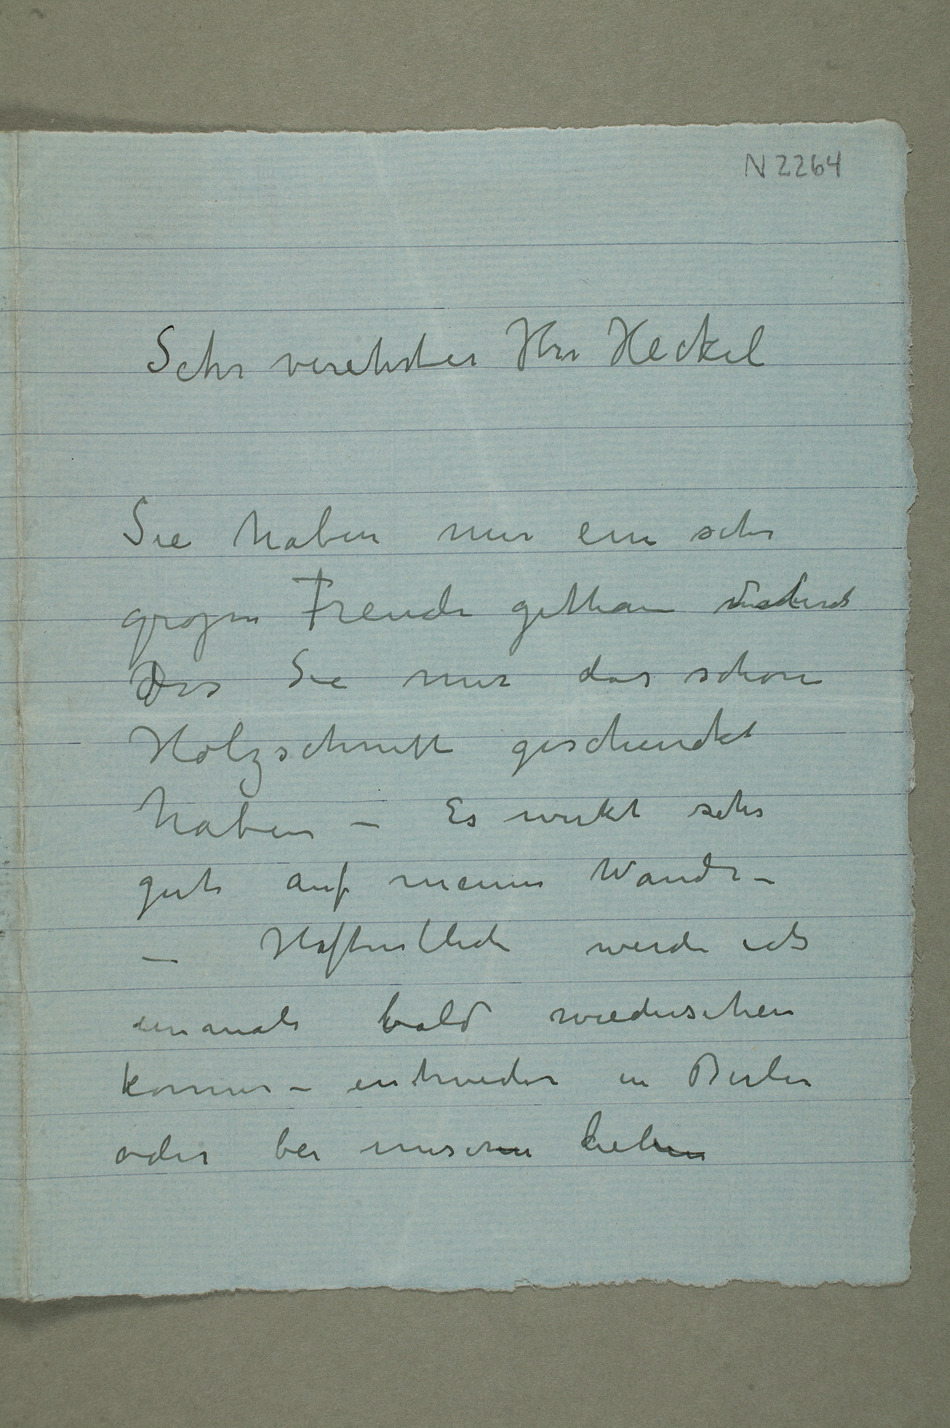 N 2264
Sehr verehrter Herr Heckel
Sie haben mir ein sehr
grosse Freude gethan
Das Sie mir das schöne
Holzschnitt geschenckt
haben – Es wirkt sehr
gut auf meine Wande –
– Hoffentlich werde ich
einmals bald wiedersehen
kommen – entweder in Berlin
oder bei unseren lieben